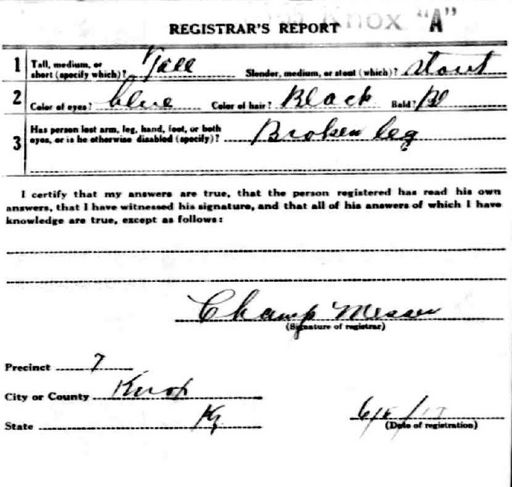 Knox "A"
REGISTRAR'S REPORT
1 Tall, medium, or short (specify which)? Tall Slender, medium, or stout (which)? stout
2 Color of eyes? blue Color of hair? Black Bald?
3 Has person lost arm, leg, hand, foot, or both eyes, or is he otherwise disabled (specify)? Broken leg
I certify that my answers are true, that the person registered has read his own
answers, that I have witnessed his signature, and that all of his answers of which I have
knowledge are true, except as follows:
Champ Messer
(Signature of registrar)
Precinct 7
City or County Knox
State Ky
(Date of registration)